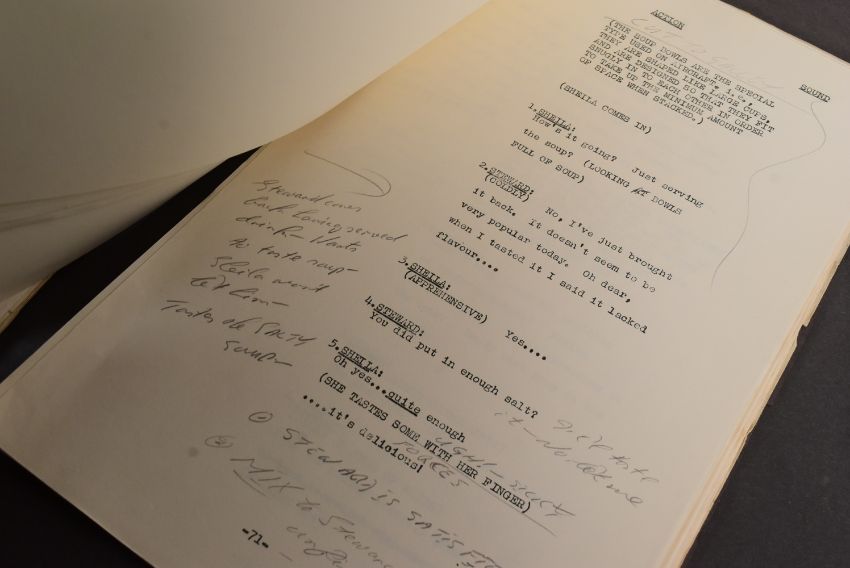 ACTION
SOUND
(THE SOUP BOWLS ARE THE SPECIAL
TYPE USED ON AIRCRAFT, i.e.,
THEY ARE SHAPED LIKE LARGE CUPS,
AND ARE DESIGNED SO THAT THEY FIT
SNUGLY IN TO EACH OTHER IN ORDER
TO TAKE UP THE MINIMUM AMOUNT
OF SPACE WHEN STACKED.)
(SHEILA COMES IN)
1. SHEILA:
How's it going? Just serving
the soup? (LOOKING AT BOWLS
FULL OF SOUP)
2. STEWARD:
(COLDLY)
No, I've just brought
it back. It doesn't seem to be
very popular today. Oh dear,
when I tasted it I said it lacked
flavour....
3. SHEILA:
(APPREHENSIVE) Yes....
4. STEWARD:
You did put in enough salt?
5. SHEILA:
Oh yes...quite enough
(SHE TASTES SOME WITH HER FINGER)
....it's delicious!
Steward
back having served
drink
to taste soup-
Sheila won't
let him-
Tastes the SALTY
soup
① STEWARD IS
② MIX to Steward
-71-